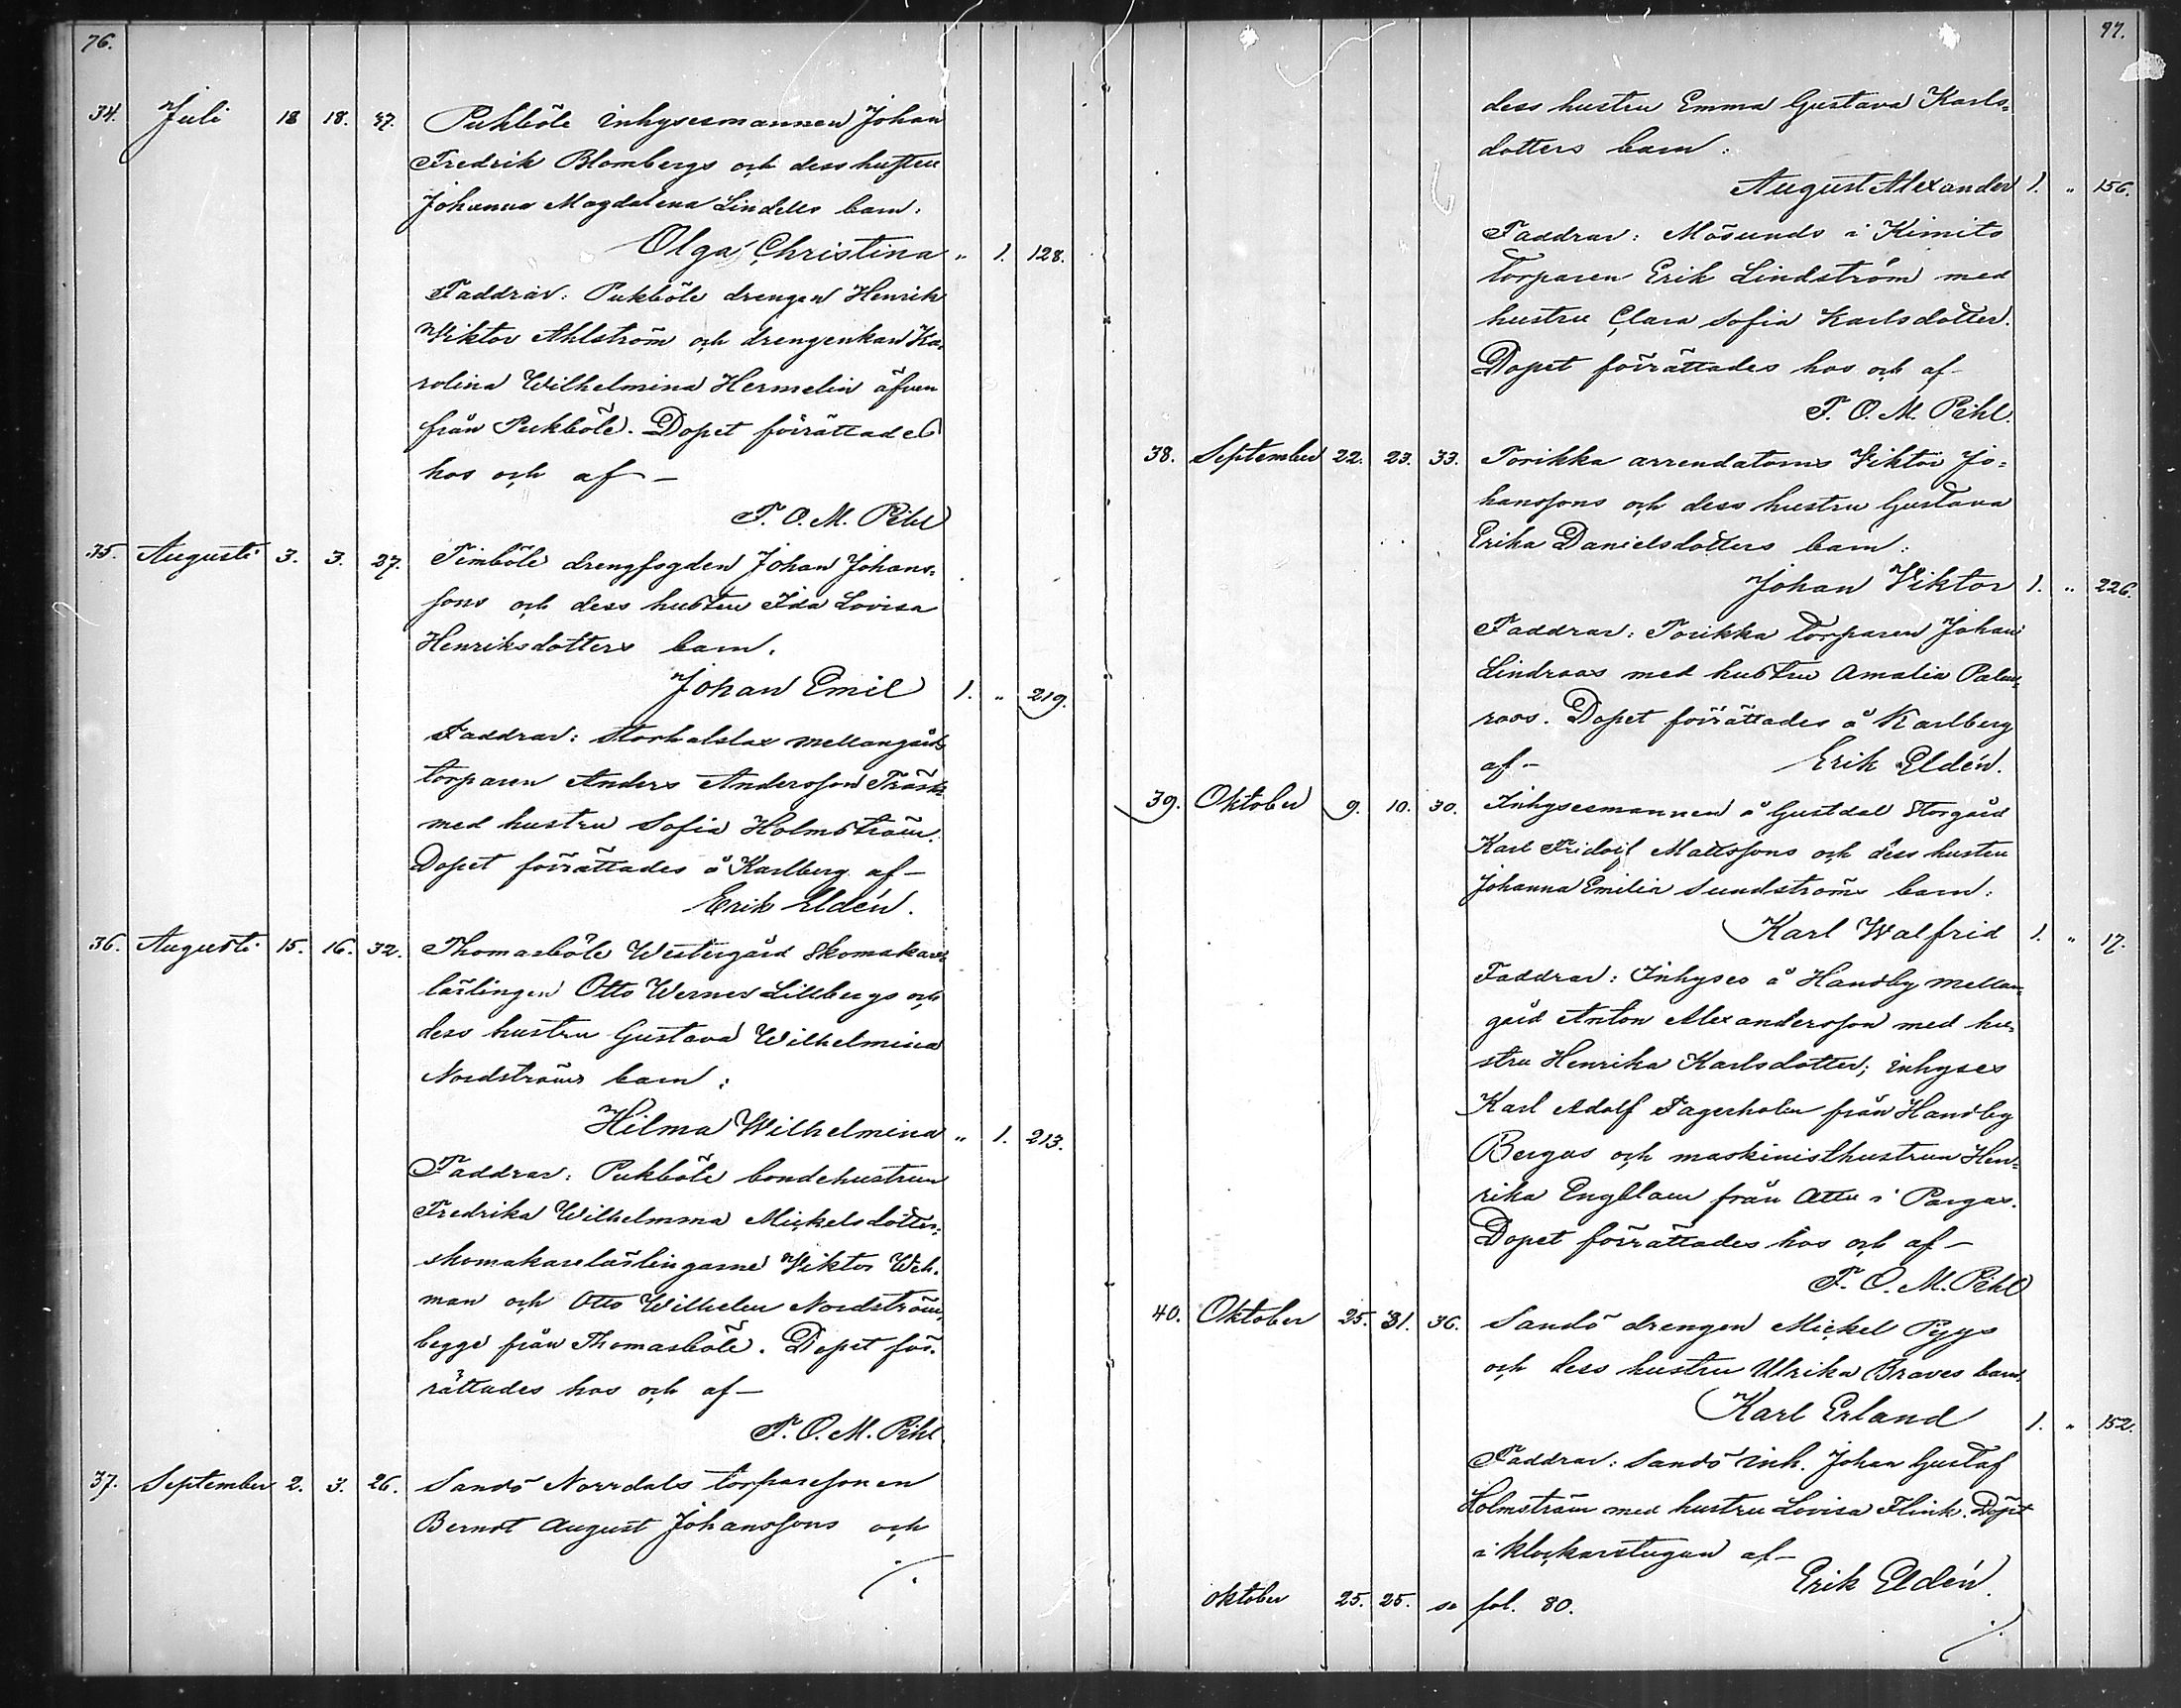 76.
34. Juli 18 18. 37. Pukböle inhysesmannen Johan
Fredrik Blombergs och dess hustru
Johanna Magdalena Lindells barn:
Olga Christina " 1. 128.
Faddrar: Pukböle drengen Henrik
Viktor Ahlström och drengenkan Ka-
rolina Wilhelmina Hermelin äfven
från Pukböle. Dopet förrättades
hos och af –
F. O. M. Pihl
35. Augusti 3. 3. 27. Pimböle drengfogden Johan Johans-
sons och dess hustru Ida Lovisa
Henriksdotters barn.
Johan Emil 1. " 219.
Faddrar: Storhalslax mellangårds
torparen Anders Andersson Träsk
med hustru Sofia Holmström.
Dopet förrättades å Karlberg af –
Erik Eldén.
36. Augusti 15. 16. 32. Thomasböle Westergård Skomakare
lärlingen Otto Werner Lillbergs och
dess hustru Gustava Wilhelmina
Nordströms barn:
Hilma Wilhelmina " 1. 213.
Faddrar: Pukböle bondehustrun
Fredrika Wilhelmina Mickelsdotter,
skomakarelärlingarne Viktor Weh-
man och Otto Wilhelm Nordström,
begge från Thomasböle. Dopet för-
rättades hos och af –
F. O. M. Pihl.
37. September 2. 3. 26. Sandö Norrdals torparesonen
Berndt August Johanssons och
./.
97.
dess hustru Emma Gustava Karls-
dotters barn:
August Alexander 1. " 156.
Faddrar: Mösunds i Kimito
torparen Erik Lindström med
hustru Clara Sofia Karlsdotter.
Dopet förrättades hos och af –
F. O. M. Pihl.
38. September 22. 23. 33. Torikka arrendatorns Viktor Jo-
hanssons och dess hustru Gustava
Erika Danielsdotters barn:
Johan Viktor 1. " 226.
Faddrar: Torikka torparen Johan
Lindroos med hustru Amalia Palm-
roos. Dopet förrättades å Karlberg
af – Erik Eldén.
39. Oktober 9. 10. 30. Inhysesmannen å Gustdal Storgård
Karl Fridolf Mattssons och dess hustru
Johanna Emilia Sundströms barn:
Karl Walfrid 1. " 17.
Faddrar: Inhyses å Handby mellan-
gård Anton Alexandersson med hu-
stru Henrika Karlsdotter; inhyses
Karl Adolf Fagerholm från Handby
Bergas och maskinisthustrun Hen-
rika Engblom från Attu i Pargas.
Dopet förrättades hos och af –
F. O. M. Pihl
40. Oktober 25. 31. 36. Sandö drengen Mickel Pyys
och dess hustru Ulrika Braves barn.
Karl Erland 1. " 152.
Faddrar: Sandö inh. Johan Gustaf
Holmström med hustru Lovisa Flink. Dopet
i klockarstugan af –
Erik Eldén.
Oktober 25. 25. se fol. 80.
./.